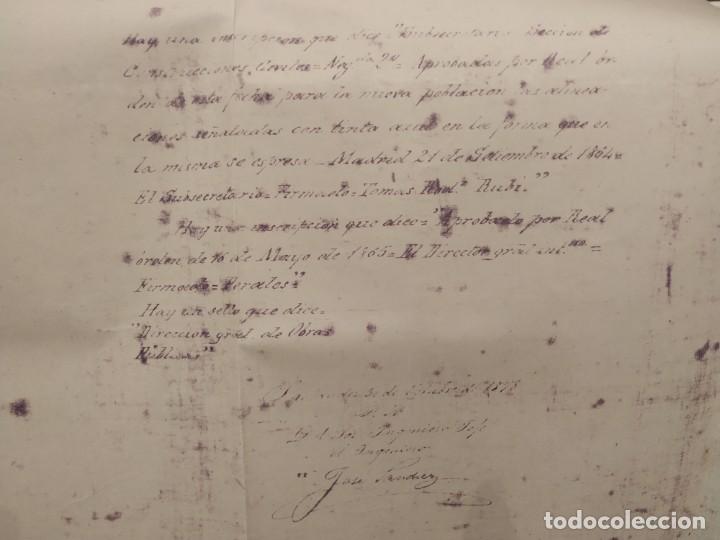 Hay una inscripcion que dice "Subsecretaria Seccion de
Construcciones Civiles = Neg.do 2º = Aprobadas por Real ór-
den de esta fecha para la nueva población las alinea-
ciones señaladas con tinta azul en la forma que en
la misma se espresa _ Madrid 21 de Setiembre de 1864 =
El Subsecretario = Firmado = Tomás Rod.z Rubí."
Hay una inscripción que dice = "Aprobado por Real
órden de 16 de Mayo de 1865 = El Director gral int.no =
Firmado = Perales"
Hay un sello que dice =
"Direccion gral de Obras
Públicas"
de 1878
El Ingeniero Jefe
El Ingeniero
José
todocoleccion.net